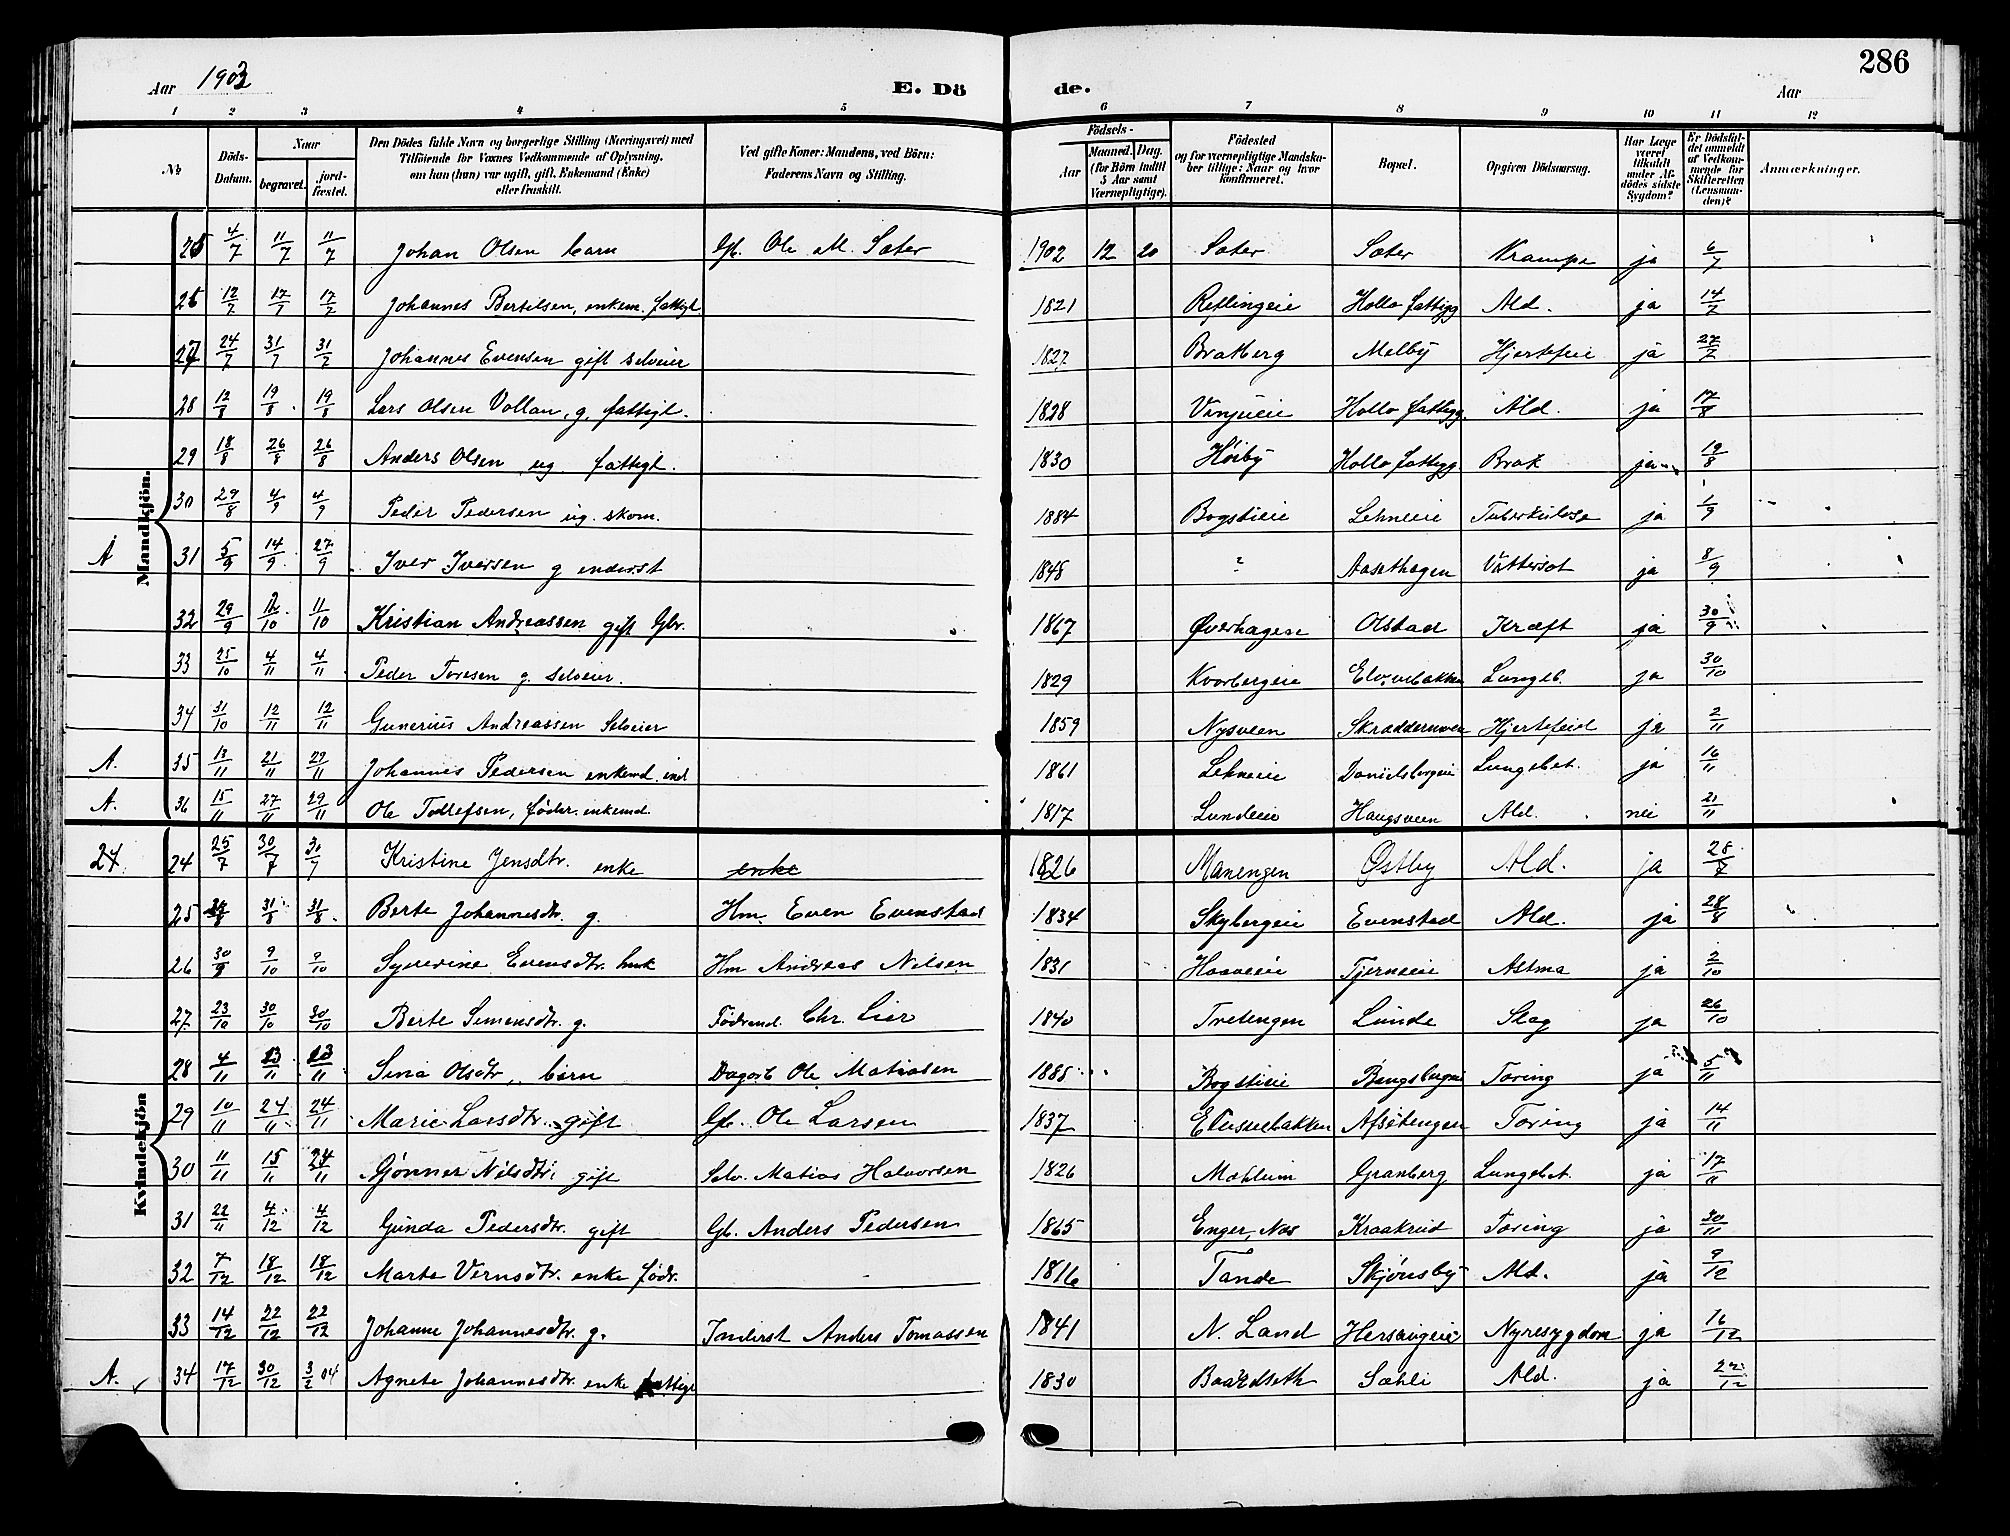 286
Aar 1903 E. Dö de. Aar
1 2 3 4 5 6 7 8 9 10 11 12
No Döds-Datum. Naar begravet. jordfæstet. Den Dödes fulde Navn og borgerlige Stilling (Næringsvei) med Tilföiende for Voxnes Vedkommende af Oplysning, om han (hun) var ugift, gift, Enkemand (Enke) eller fraskilt. Ved gifte Koner: Mandens, ved Börn: Faderens Navn og Stilling. Födsels- Aar Maaned. Dag. (for Börn indtil 5 Aar samt Værnepligtige). Födested og for værnepligtige Mandskaber tillige: Naar og hvor konfirmeret. Bopæl. Opgiven Dödsaarsag. Har Læge været tilkaldt under Afdödes sidste Sygdom? Er Dödsfaldet anmeldt af Vedkommende for Skifteretten (Lensmanden)? Anmærkninger.
Mandkjön.
25 4/7 11/7 11/7 Johan Olsen barn Gb. Ole M. Sæter 1902 12 20 Sæter Sæter Krampe ja 6/7
26 12/7 17/7 17/7 Johannes Bertelsen, enkem. fattigl. 1821 Reflingeie Hollo fattigg Ald. ja 14/7
27 24/7 31/7 31/7 Johannes Evensen gift selveier 1827 Bratberg Melby Hjertefeil ja 27/7
28 12/8 19/8 19/8 Lars Olsen Vollan, g, fattigl. 1828 Vinjueie Hollo fattigg. Ald. ja 17/8
29 18/8 26/8 26/8 Anders Olsen ug. fattigl. 1830 Høiby Hollo fattigg Brok ja 19/8
30 29/8 4/9 4/9 Peder Pedersen ug. skom. 1884 Bogstieie Lehneeie Tuberkulose ja 1/9
A 31 5/9 14/9 27/9 Iver Iversen g inderst 1848 ? Aasethagen Vattersot ja 8/9
32 29/9 /10 11/10 Kristian Andreassen gift Gbr. 1867 Øverhagen Olstad Kræft ja 30/9
33 25/10 4/11 4/11 Peder Toresen g. selveier. 1829 Kvorbergeie Lungeb. ja 30/10
34 31/10 12/11 12/11 Gunerius Andreassen Selveier 1859 Nysveen Skrædderuveen Hjertefeil ja 2/11
A. 35 13/11 21/11 29/11 Johannes Pedersen enkemd. ind 1861 Lehneeie Danielsbergeie Lungebet. ja 16/11
A. 36 15/11 27/11 29/11 Ole Tollefsen, føder. enkemd. 1817 Lundeie Haugsveen Ald. nei 21/11
Kvindekjön
24 24 25/7 30/7 31/7 Kristine Jensdtr. enke enke 1826 Manengen Østby Ald. ja 28/7
25 /8 31/8 31/8 Berte Johannesdtr. g. Hm. Even Evenstad 1834 Skybergeie Evenstad Ald. ja 28/8
26 30/9 9/10 9/10 Syverine Evensdtr. Hm Andreas Nilsen 1831 Haaveeie Tjerneeie Astma ja 2/10
27 23/10 30/10 30/10 Berte Simensdtr. g. Födrmd. Chr. Lier 1840 Tretengen Lunde Slag ja 26/10
28 4/11 13/11 13/11 Sina Olsdtr, barn Dagarb Ole Matiasen 1885 Bogstieie Tæring ja 5/11
29 10/11 24/11 24/11 Marie Larsdtr. gift Gb. Ole Larsen 1837 Afsetengen Tæring ja 14/11
30 11/11 15/11 24/11 Gjønner Nilsdtr. gift Selv. Matias Halvorsen 1826 Mæhlum Granberg Lungebet. ja 17/11
31 22/11 4/12 4/12 Gunda Pedersdtr. gift Gb. Anders Pedersen 1865 Enger, Nes Kraakrud Tæring ja 30/11
32 7/12 18/12 18/12 Marte Vernsdtr. enke födr. 1816 Tande Skjønsby Ald. ja 9/12
33 14/12 22/12 22/12 Johanne Johannesdtr. g. Inderst Anders Tomassen 1841 N. Land Hersaugeie Nyresygdom ja 16/12
A. 34 17/12 30/12 3/2 04 Agnete Johannesdtr. enke fattigl 1830 Baardseth Sæhli Ald. ja 22/12